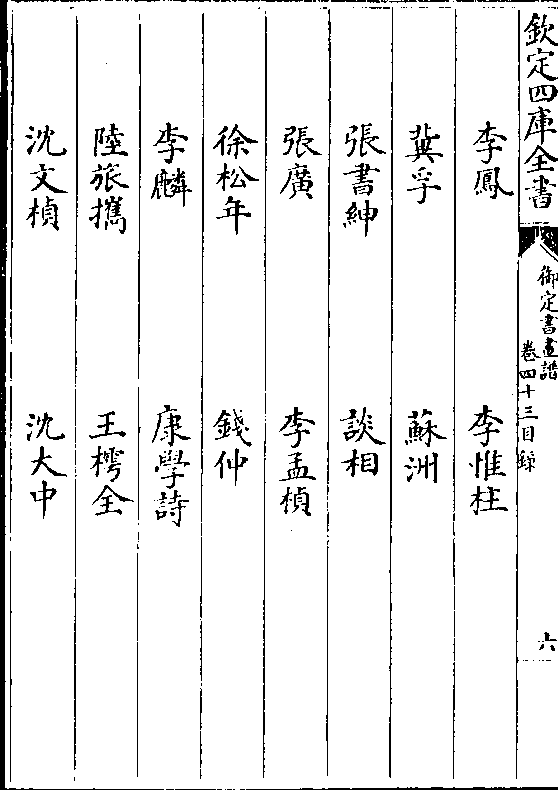 欽定四庫全書
御定書畫譜
卷四十三目錄
六
李鳳　李惟柱
冀孚　蘇洲
張書紳　談相
張廣　李孟楨
徐松年　錢仲
李麟　康學詩
陸旅攜　王樗全
沈文楨　沈大中